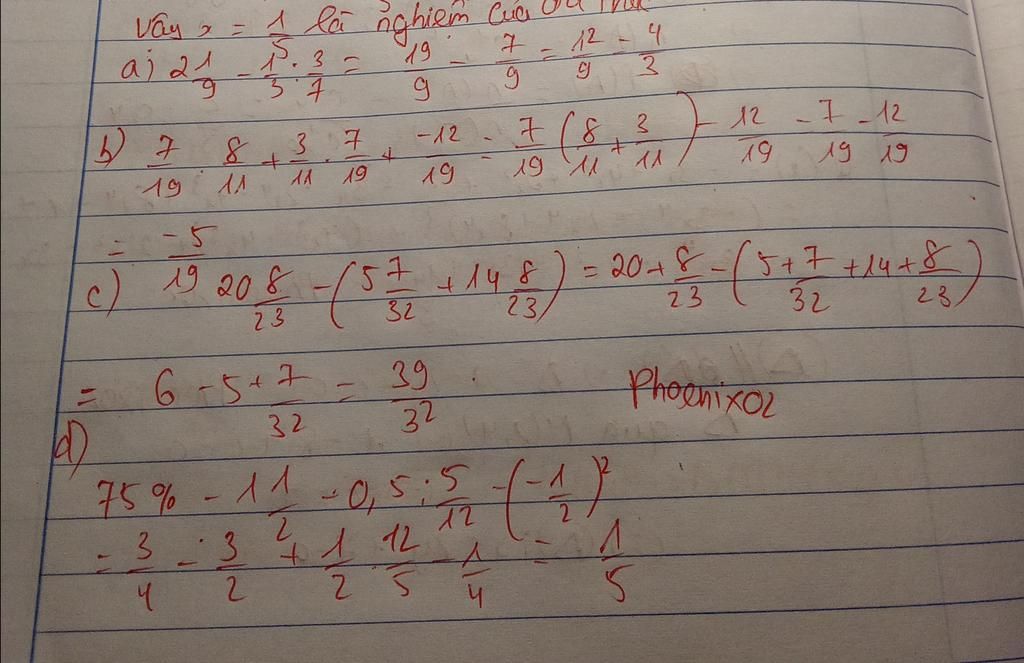 Vậy x = 1/5 là nghiệm của
a) 2 1/9 - 1/3 : 3/7 = 19/9 - 7/9 = 12/9 = 4/3
b) 7/19 . 8/11 + 3/11 . 7/19 + -12/19 = 7/19 (8/11 + 3/11) - 12/19 = 7/19 - 12/19
= -5/19
c) 20 8/23 - (5 7/32 + 14 8/23) = 20 + 8/23 - (5 + 7/32 + 14 + 8/23)
= 6 - 5 + 7/32 = 39/32
Phoenix02
d)
75% - 1 1/2 - 0,5 : 5/12 - (-1/2)²
= 3/4 - 3/2 + 1/2 . 12/5 - 1/4 = 1/5